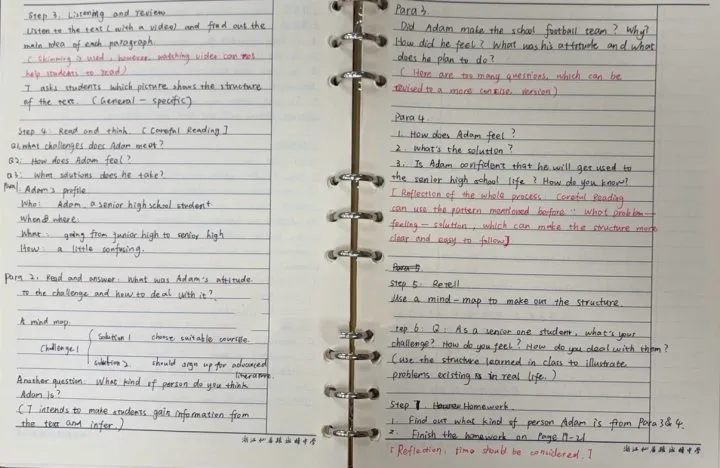 Step 3. Listening and review
Listen to the text (with a video) and find out the
main idea of each paragraph.
(Skimming is used, however, watching video can not
help students to read)
T asks students which picture shows the structure
of the text. (General - specific)
Step 4: Read and think. (Careful Reading]
Q1. What challenges does Adam meet?
Q2: How does Adam feel?
Q3: What solutions does he take?
Para1: Adam's profile
Who: Adam, a senior high school student
When & where:
What: going from junior high to senior high
How: a little confusing.
Para 2. Read and answer: What was Adam's attitude
to the challenge and how to deal with it?
A mind map.
Solution 1 choose suitable course.
Challenge 1
Solution 2. should sign up for advanced
literature.
Another question: What kind of person do you think
Adam is?
(T intends to make students gain information from
the text and infer.)
Para 3.
Did Adam make the school football team? Why?
How did he feel? What was his attitude and what
does he plan to do?
(Here are too many questions, which can be
revised to a more concise version)
Para 4.
1. How does Adam feel?
2. What's the solution?
3. Is Adam confident that he will get used to
the senior high school life? How do you know?
[Reflection of the whole process: Careful Reading
can use the pattern mentioned before: what problem -
feeling - solution, which can make the structure more
clear and easy to follow]
Para 5
Step 5: Retell
Use a mind-map to make out the structure.
Step 6: Q: As a senior one student, what's your
challenge? How do you feel? How do you deal with them?
(use the structure learned in class to illustrate
problems existing in real life.)
Step 7. Homework.
1. Find out what kind of person Adam is from Para 3 & 4.
2. Finish the homework on Page 19-21
[Reflection, time should be considered.]